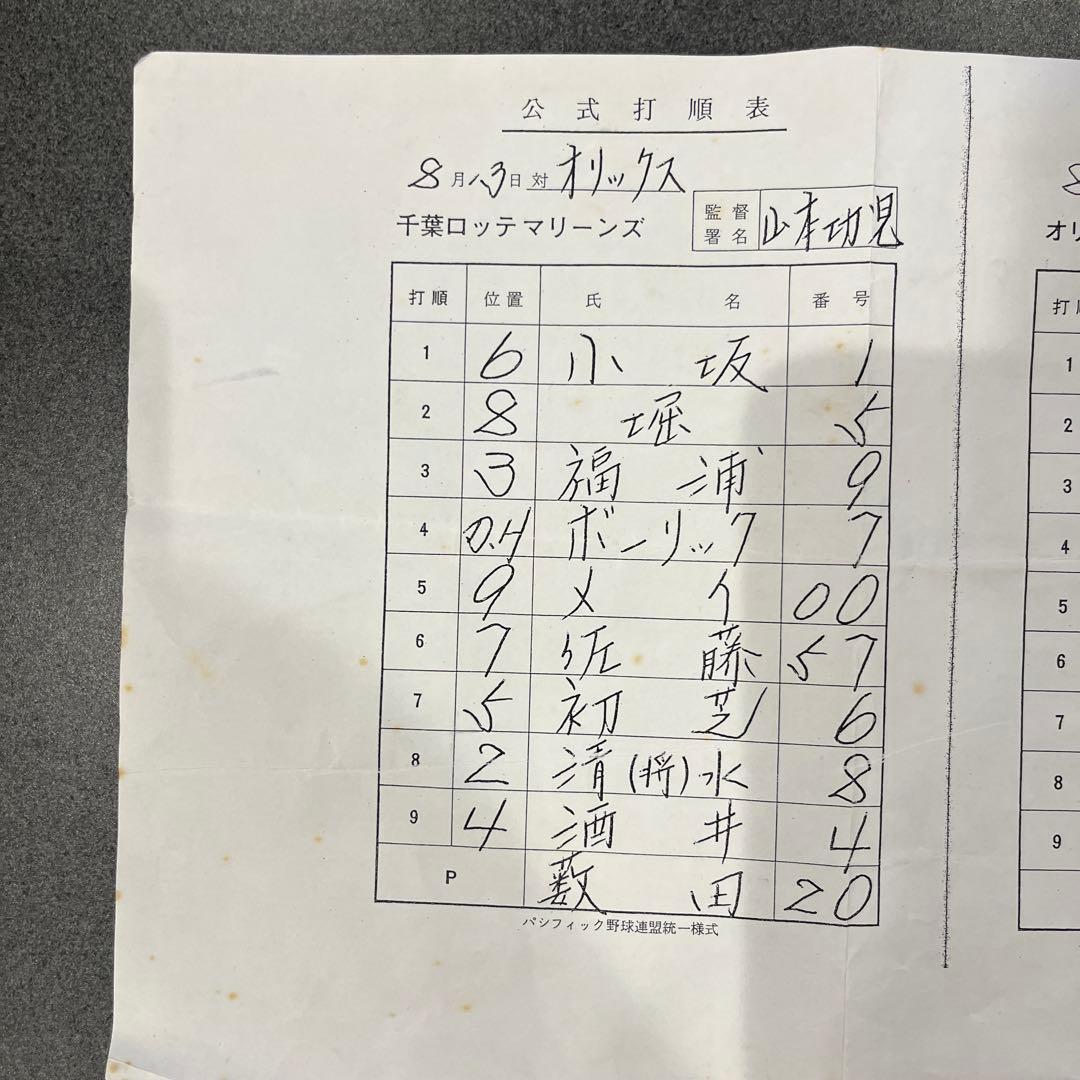 公式打順表
8月13日対オリックス
千葉ロッテマリーンズ 監督署名 山本功児
打順 位置 氏名 番号
1 6 小坂 1
2 8 堀 5
3 3 福浦 9
4 D.H ボーリック 7
5 9 メイ 00
6 7 佐藤 57
7 5 初芝 6
8 2 清(将)水 8
9 4 酒井 4
P 薮田 20
パシフィック野球連盟統一様式
8
オリ
打順
1
2
3
4
5
6
7
8
9